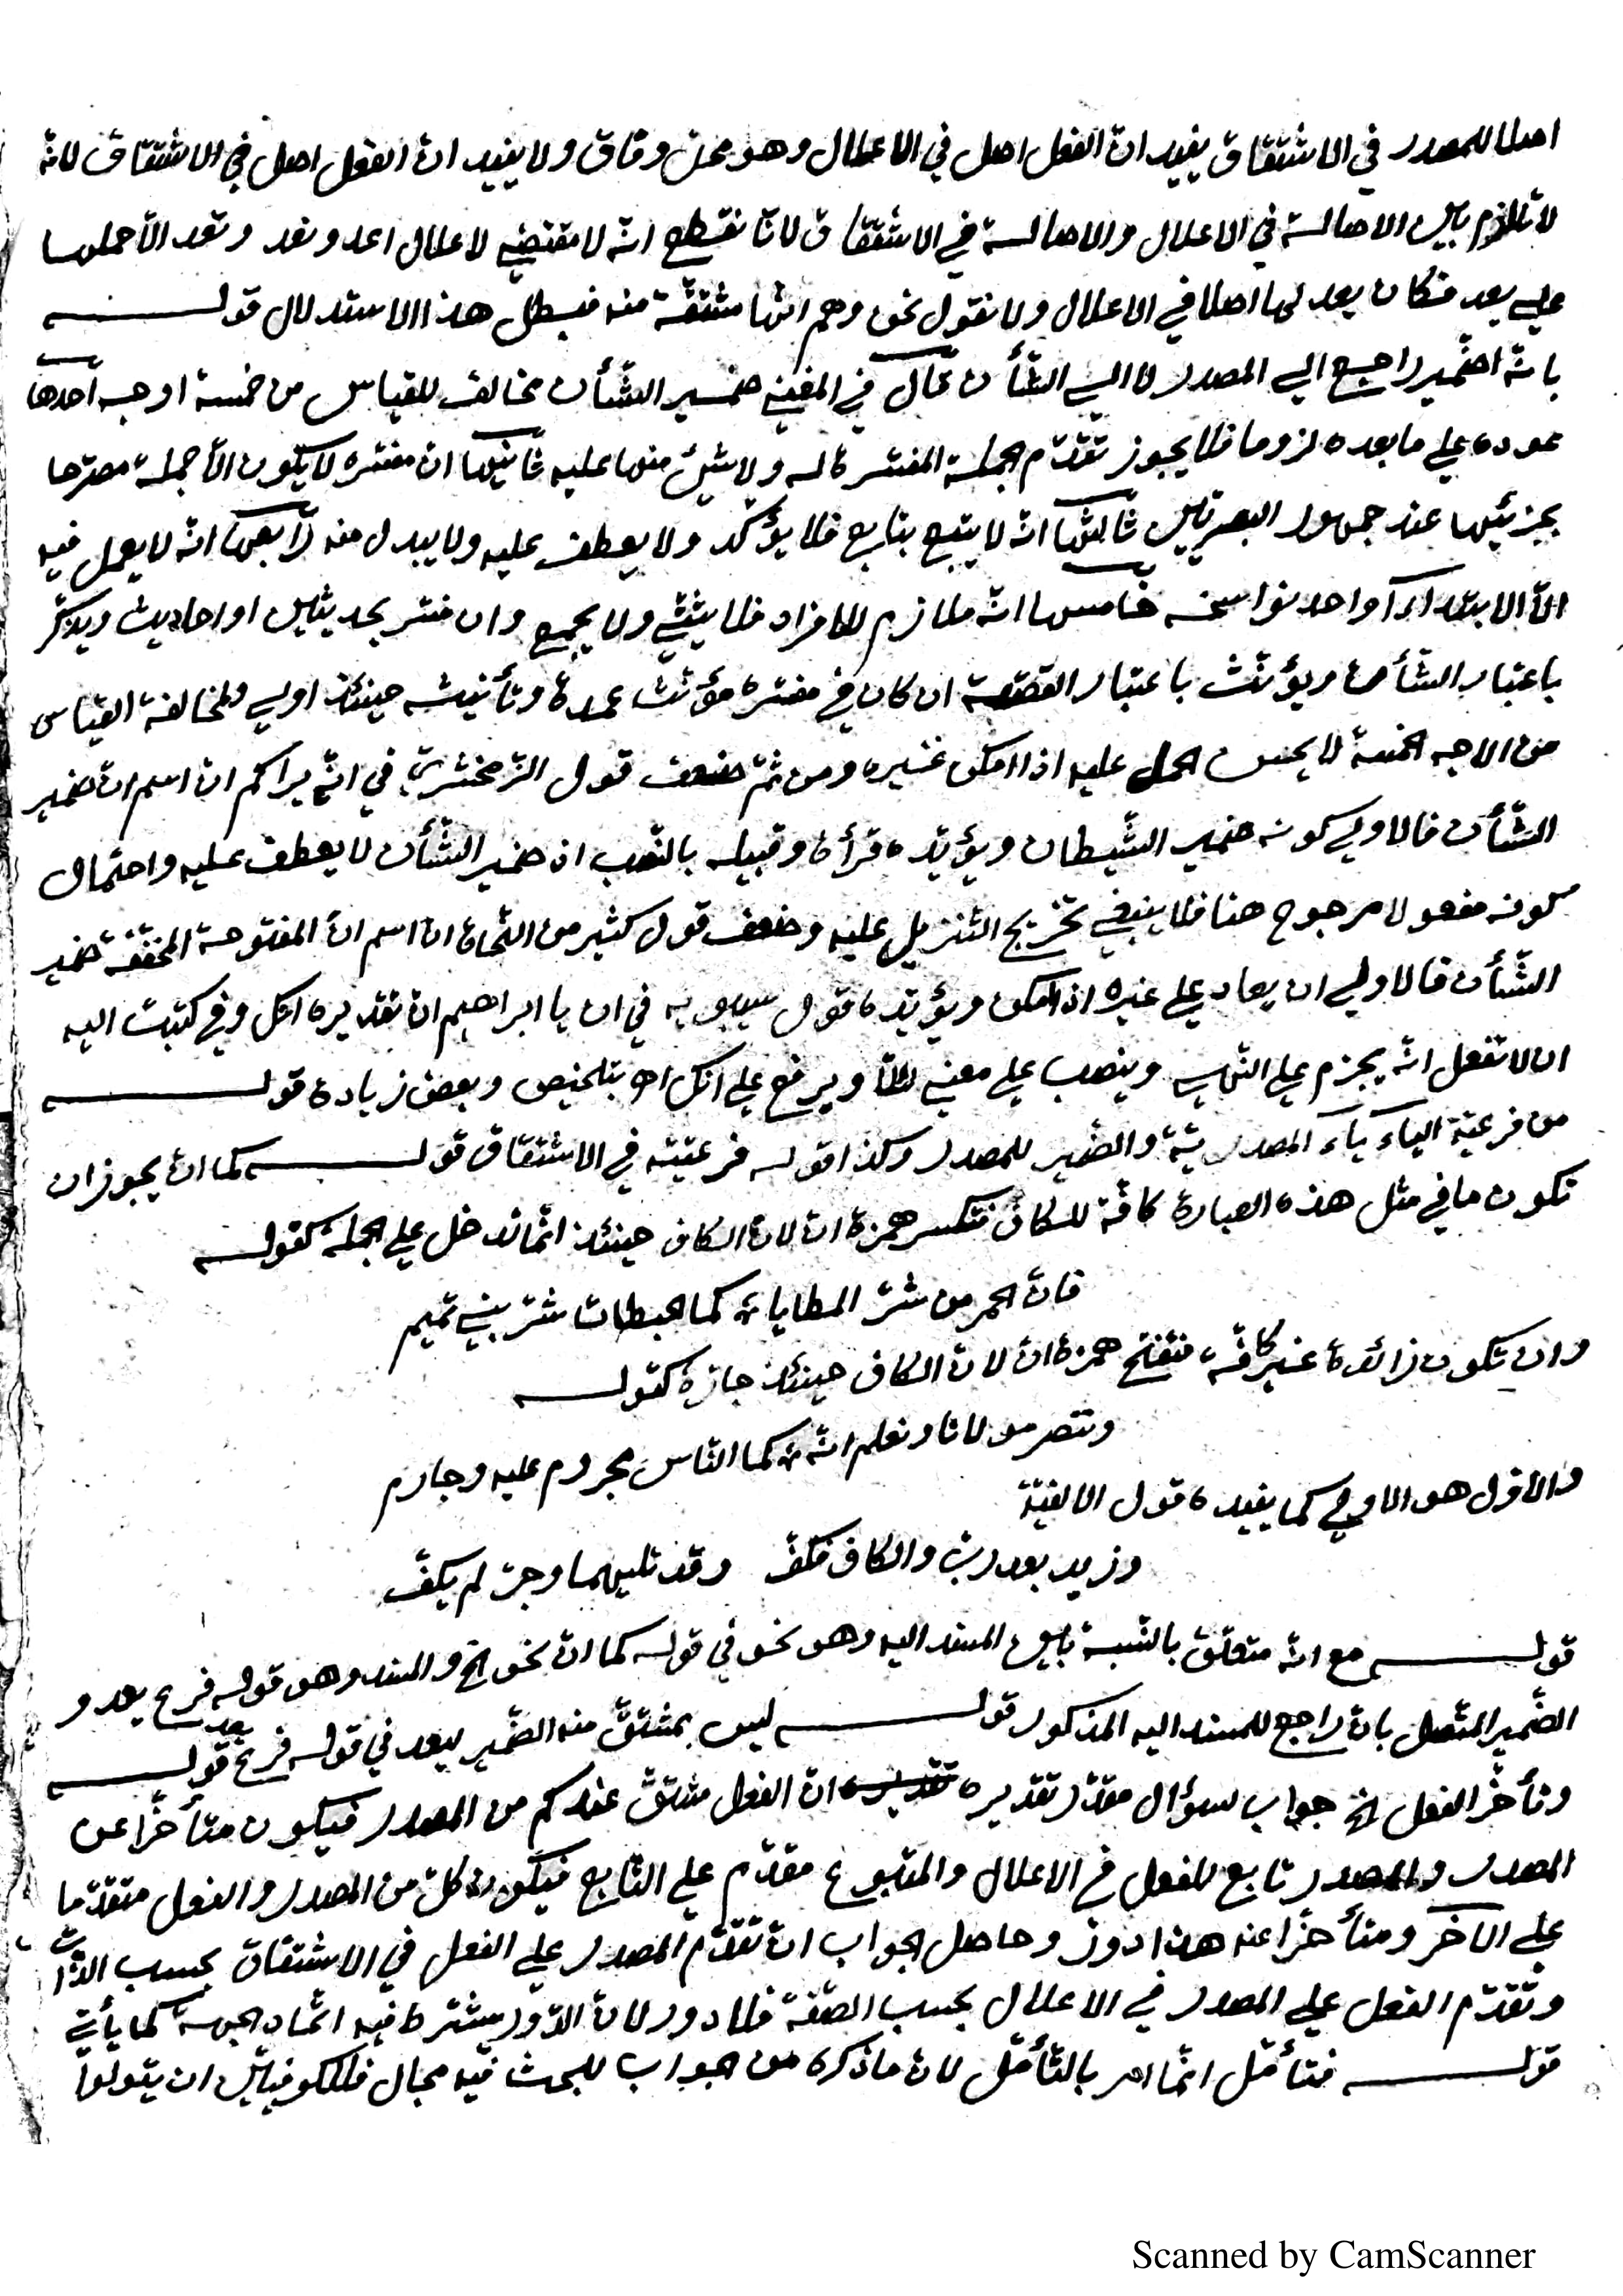 اصلا للمصدر في الاشتقاق يفيد انّ الفعل اصل في الاعلال وهو محلّ وفاق ولا يفيد انّ الفعل اصل في الاشتقاق لانّه
لا تلازم بين الاصالة في الاعلال والاصالة في الاشتقاق لانّا نقطع انّه لا مقتضي لاعلال اعد ونعد وتعد الّا حملها
علي يعد فكان يعد لها اصلا في الاعلال ولا نقول نحن وهم انّها مشتقّة منه فبطل هذا الاستدلال قولــه
بانّه الضّمير راجع الي المصدر لا الي الشّأن قال في المغني ضمير الشّأن مخالف للقياس من خمسة اوجه احدها
عوده علي ما بعده لزوما فلا يجوز تقدّم الجملة المفسّرة له ولا شيئ منها عليه ثانيها انّ مفسّره لا يكون الّا جملة مصرّحا
بجزئيها عند جمهور البصريّين ثالثها انّه لا يتبع بتابع فلا يؤكّد ولا يعطف عليه ولا يبدل منه رابعها انّه لا يعمل فيه
الّا الابتدآء او احد نواسخه خامسها انّه ملازم للافراد فلا يثنّي ولا يجمع وان فسّر بحديثين او احاديث ويذكّر
باعتبار الشّأن ويؤنّث باعتبار القصّة ان كان في مفسّره مؤنّث عمدة وتأنيثه حينئذ اولي ولمخالفة القياس
من الاوجه الخمسة لا يحسن الحمل عليه اذا امكن غيره ومن ثمّ ضعف قول الزّمخشريّ في انّه يراكم انّ اسم انّ ضمير
الشّأن فالاولي كونه ضمير الشّيطان ويؤيّده قرأة وقبيله بالنّصب اذ ضمير الشّأن لا يعطف عليه واحتمال
كونه مفعولا مرجوح هنا فلا ينبغي تخريج التّنزيل عليه وضعف قول كثير من النّحاة انّ اسم انّ المفتوحة المخفّفة ضمير
الشّأن فالاولي ان يعاد علي غيره اذا امكن ويؤيّده قول سيبويه في ان يا ابراهيم انّ تقديره انّك وفي كتبت اليه
ان لا تفعل انّه يجزم علي النّهي وينصب علي معني لئلّا ويرفع علي انّك اه بتلخيص وبعض زيادة قولــه
من فرعيّة الياء ياء المصدريّة والضّمير للمصدر وكذا قوله فرعيّته في الاشتقاق قولــه كما انّ يجوز ان
تكون ما في مثل هذه العبارة كافّة للكاف فتكسر همزة انّ لانّ الكاف حينئذ انّما تدخل علي الجملة كقولــه
فانّ الحمر من شرّ المطايا ؞ كما الحبطات شرّ بني تميم
وان تكون زائدة غير كافّة فتفتح همزة انّ لانّ الكاف حينئذ جارّة كقولــه
وننصر مولانا ونعلم انّه ؞ كما النّاس مجروم عليه وجارم
والاوّل هو الاولي كما يفيده قول الالفيّة
وزيد بعد ربّ والكاف فكفّ وقد تليهما وجرّ لم يكفّ
قولــه مع انّه متعلّق بالنّسبة بين المسند اليه وهو نحو في قوله كما انّ نحو الخ والمسند وهو قوله فرع يعد و
الضّمير المتّصل بانّ راجع للمسند اليه المذكور قولــه ليس بمشتقّ منه الضّمير ليعد في قوله فرع يعد قولــه
وتأخّر الفعل الخ جواب سؤال مقدّر تقديره انّ الفعل مشتقّ عندكم من المصدر فيكون متأخّرا عن
المصدر والمصدر تابع للفعل في الاعلال والمتبوع مقدّم علي التّابع فيكون كلّ من المصدر والفعل متقدّما
علي الآخر ومتأخّرا عنه هذا دور وحاصل الجواب انّ تقدّم المصدر علي الفعل في الاشتقاق بحسب الذّات
وتقدّم الفعل علي المصدر في الاعلال بحسب الصّفة فلا دور لانّ الدّور يشترط فيه اتّحاد الجهة كما يأتي
قولــه فتأمّل انّما امر بالتّأمّل لانّ ما ذكره من الجواب للبحث فيه مجال فللكوفيّين ان يقولوا
Scanned by CamScanner